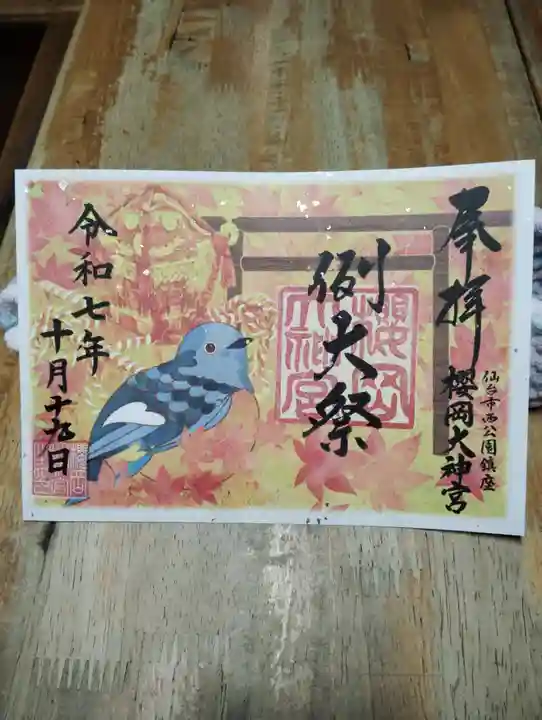 奉拝
仙台市西公園鎮座
櫻岡大神宮
例大祭
櫻岡
大神宮
令和七年
十月十九日